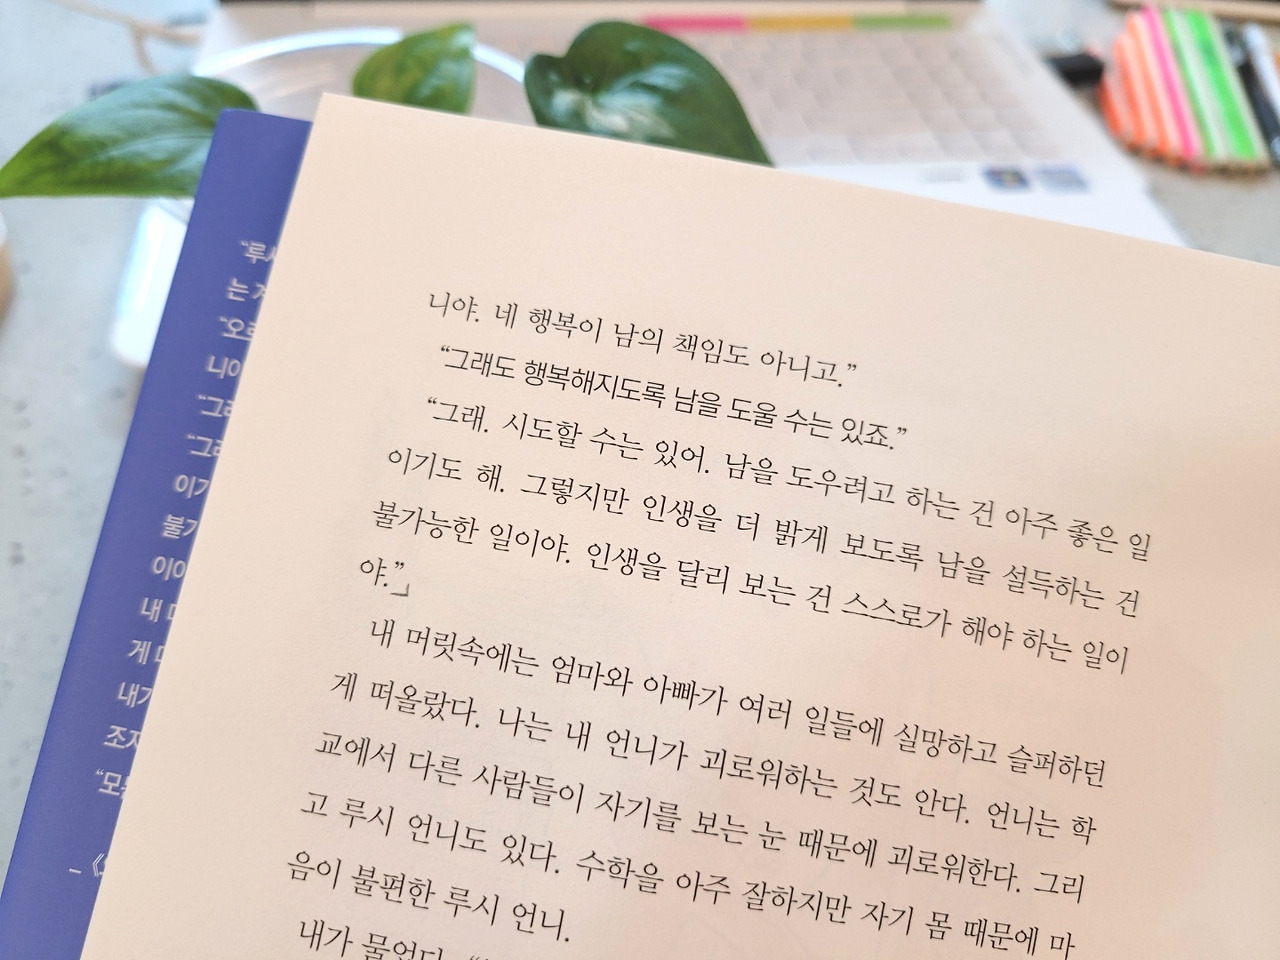 니야. 네 행복이 남의 책임도 아니고.”
“그래도 행복해지도록 남을 도울 수는 있죠.”
“그래. 시도할 수는 있어. 남을 도우려고 하는 건 아주 좋은 일
이기도 해. 그렇지만 인생을 더 밝게 보도록 남을 설득하는 건
불가능한 일이야. 인생을 달리 보는 건 스스로가 해야 하는 일이
야.”」
내 머릿속에는 엄마와 아빠가 여러 일들에 실망하고 슬퍼하던
게 떠올랐다. 나는 내 언니가 괴로워하는 것도 안다. 언니는 학
교에서 다른 사람들이 자기를 보는 눈 때문에 괴로워한다. 그리
고 루시 언니도 있다. 수학을 아주 잘하지만 자기 몸 때문에 마
음이 불편한 루시 언니.
내가 물었다.